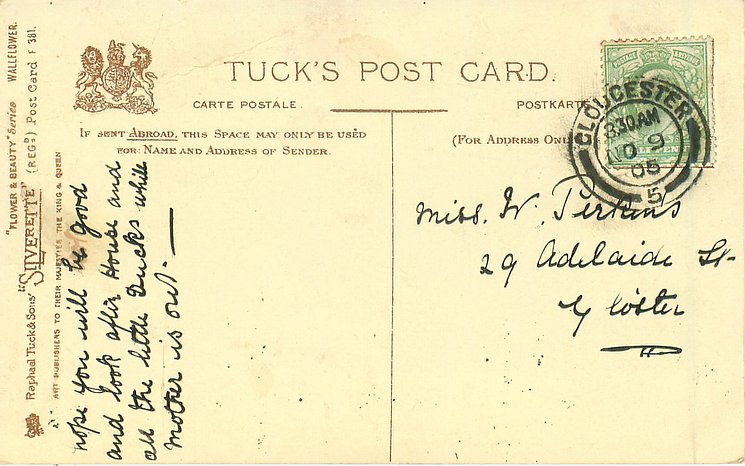 TUCK'S POST CARD.
CARTE POSTALE.
POSTKARTE
IF SENT ABROAD, THIS SPACE MAY ONLY BE USED
FOR NAME AND ADDRESS OF SENDER.
(FOR ADDRESS ONLY
GLOUCESTER
8.30 AM
NO 9
05
5
hope you will be good
and look after House and
all the little Ducks while
Mother is out.
Miss. W. Jerkins
29 Adelaide St
Gloster
"FLOWER & BEAUTY" Series WALLFLOWER.
Raphael Tuck & Sons' "SILVERETTE" (REGD) Post Card F 381.
ART PUBLISHERS TO THEIR MAJESTIES THE KING & QUEEN